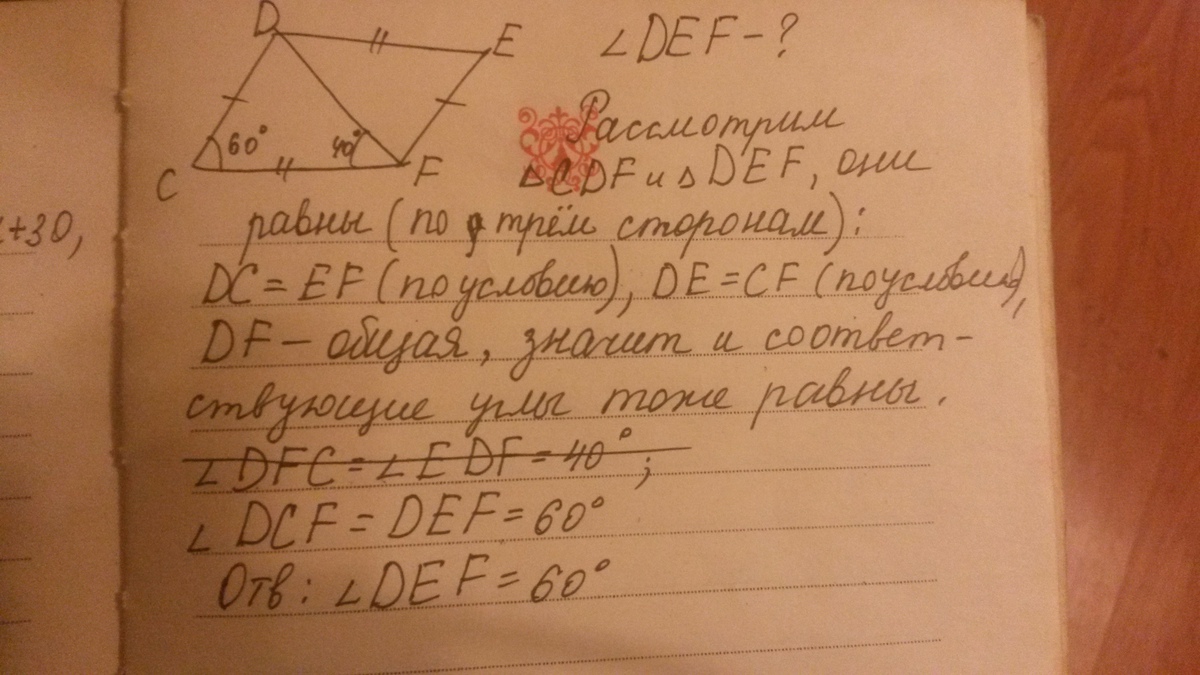 D
E
∠DEF - ?
60°
40°
C
F
Рассмотрим
△CDF и △DEF, они
равны (по трём сторонам):
DC = EF (по условию), DE = CF (по условию),
DF - общая, значит и соответ-
ствующие углы тоже равны.
∠DFC = ∠EDF = 40°;
∠DCF = DEF = 60°
Отв: ∠DEF = 60°
+30,